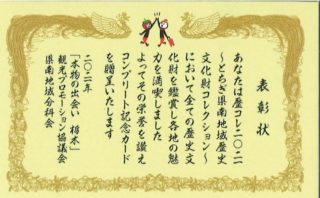 表彰状
あなたは歴コレ二〇二一
～とちぎ県南地域歴史
文化財コレクション～
において全ての歴史文
化財を鑑賞し各地の魅
力を満喫しました
よってその栄誉を讃え
コンプリート記念カード
を贈呈いたします
二〇二一年
「本物の出会い 栃木」
観光プロモーション協議会
県南地域分科会